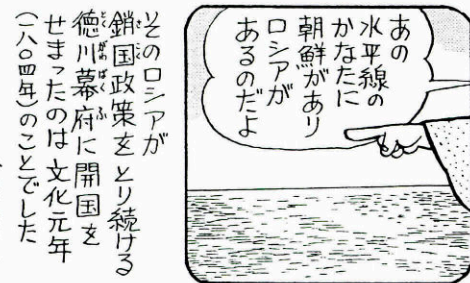 あの
水平線の
かなたに
朝鮮があり
ロシアが
あるのだよ
そのロシアが
鎖国政策をとり続ける
徳川幕府に開国を
せまったのは文化元年
(一八〇四年)のことでした